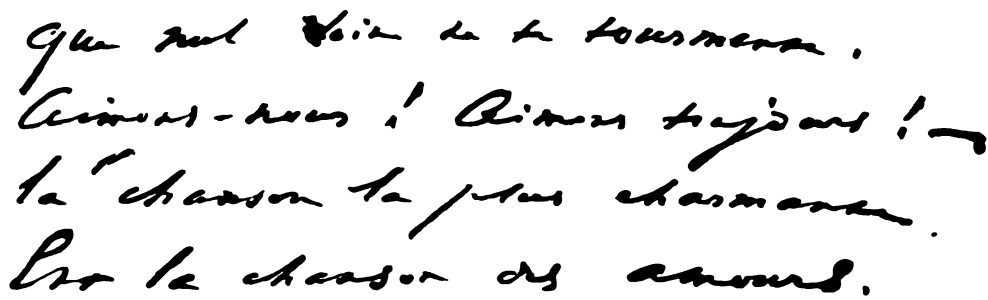 Que nul soin ne te tourmente.
Aimons-nous ! Aimons toujours ! —
La chanson la plus charmante
Est la chanson des amours.